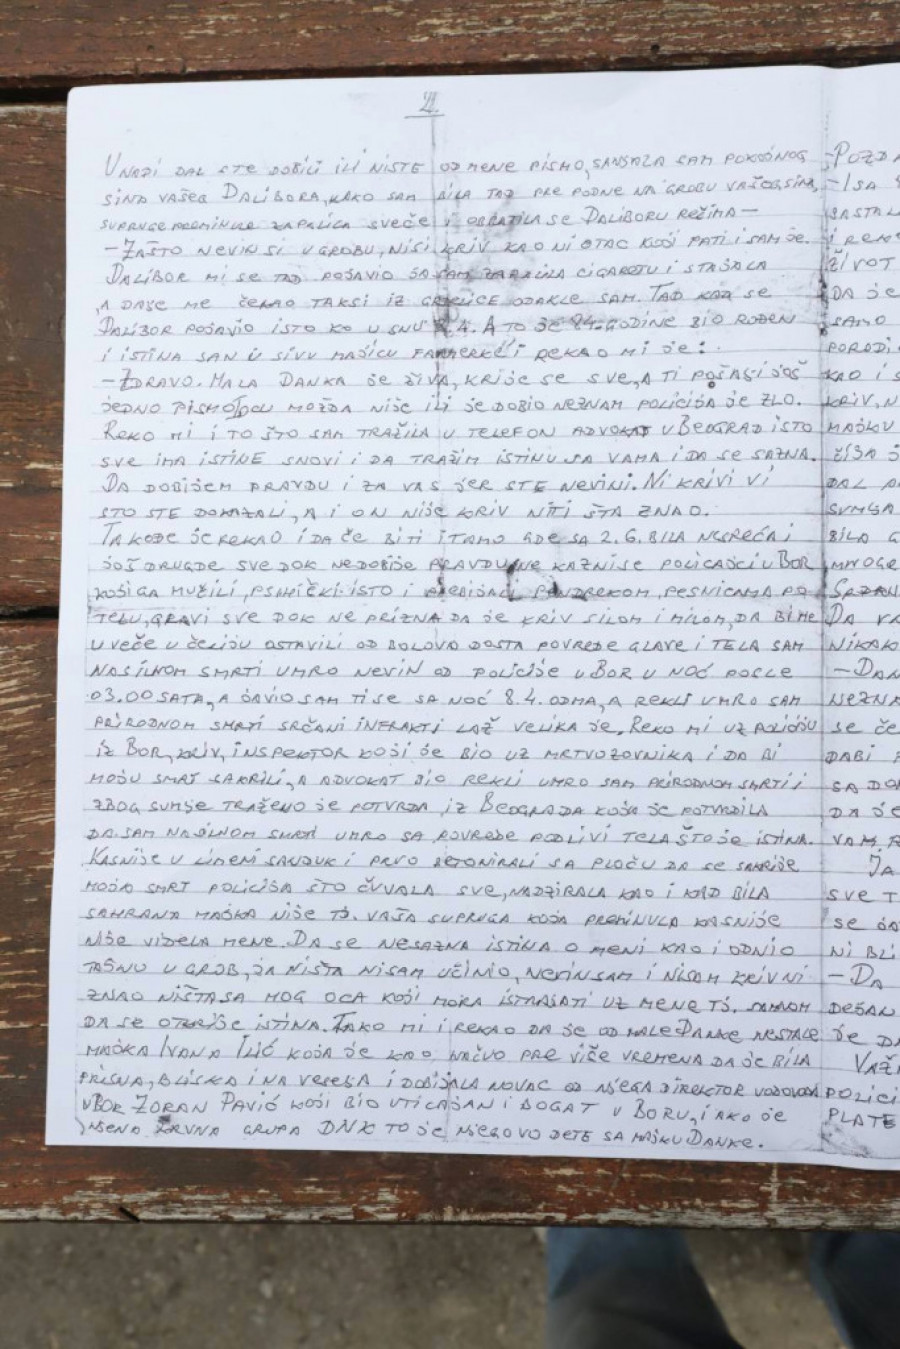 2.
U NADI DAL STE DOBILI ILI NISTE OD MENE PISMO, SANJALA SAM POKOJNOG
SINA VAŠEG DALIBORA, KAKO SAM BILA TAD PRE PODNE NA GROBU VAŠEG SINA,
SUPRUGE PREMINULE ZAPALILA SVEČE I OBRATILA SE DALIBORU REČIMA —
— ZAŠTO NEVIN SI U GROBU, NISI KRIV KAO NI OTAC KOJI PATI I SAM JE.
DALIBOR MI SE TAD POJAVIO JA SAM ZAPALILA CIGARETU I STAJALA
, A DALJE ME ČEKAO TAKSI IZ ODAKLE SAM. TAD KAD SE
DALIBOR POJAVIO ISTO KO U SNU 8.4. A TO JE 84. GODINE BIO ROĐEN
I ISTINA SAN U SIVU MAJICU FARMERKE I REKAO MI JE:
— ZDRAVO. MALA DANKA JE ŽIVA, KRIJE SE SVE, A TI POŠALJI JOŠ
JEDNO PISMO OCU MOŽDA NIJE ILI JE DOBIO NEZNAM POLICIJA JE ZLO.
REKO MI I TO ŠTO SAM TRAŽILA U TELEFON ADVOKAT U BEOGRAD ISTO
SVE IMA ISTINE SNOVI I DA TRAŽIM ISTINU SA VAMA I DA SE SAZNA.
DA DOBIJEM PRAVDU I ZA VAS JER STE NEVINI. NI KRIVI VI
STO STE DOKAZALI, A I ON NIJE KRIV NITI ŠTA ZNAO.
TAKOĐE JE REKAO I DA ČE BITI I TAMO GDE SA 2.6. BILA NESREĆA I
JOŠ DRUGDE SVE DOK NEDOBIJE PRAVDU, NE KAZNI SE POLICAJCI U BOR
KOJI GA MUČILI, PSIHIČKI ISTO I PREBIJALI PENDREKOM, PESNICAMA PO
TELU, GLAVI SVE DOK NE PRIZNA DA JE KRIV SILOM I MILOM, DA BI ME
U VEČE U ČELIJU OSTAVILI OD BOLOVA DOSTA POVREDE GLAVE I TELA SAM
NASILNOM SMRTI UMRO NEVIN OD POLICIJE U BOR U NOĆ POSLE
03.00 SATA, A JAVIO SAM TI SE SA NOĆ 8.4. ODMA, A REKLI UMRO SAM
PRIRODNOM SMRTI SRČANI INFRAKTI LAŽ VELIKA JE, REKO MI UZ POLICIJU
IZ BOR, KRIV, INSPEKTOR KOJI JE BIO UZ MRTVOZOVNIKA I DA BI
MOJU SMRT SAKRILI, A ADVOKAT BIO REKLI UMRO SAM PRIRODNOM SMRTI I
ZBOG SUMJE TRAŽENO JE POTVRDA IZ BEOGRADA KOJA JE POTVRDILA
DA SAM NASILNOM SMRTI UMRO SA POVREDE PODLIVI TELA ŠTO JE ISTINA.
KASNIJE U LIMENI SANDUK I PRVO BETONIRALI SA PLOČU DA SE SAKRIJE
MOJA SMRT POLICIJA ŠTO ČUVALA SVE, NADZIRALA KAO I KAD BILA
SAHRANA MAJKA NIJE TJ. VAŠA SUPRUGA KOJA PREMINULA KASNIJE
NIJE VIDELA MENE. DA SE NESAZNA ISTINA O MENI KAO I ODNIO
TAJNU U GROB, JA NIŠTA NISAM UČINIO, NEVIN SAM I NISAM KRIV NI
ZNAO NIŠTA SA MOG OCA KOJI MORA ISTRAJATI UZ MENE TJ. SAMNOM
DA SE OTKRIJE ISTINA. TAKO MI I REKAO DA JE OD MALE DANKE NESTALE
MAJKA IVANA ILIĆ KOJA JE KAO PRE VIČE VREMENA DA JE BILA
PRISNA, BLISKA I NA VERESIJA I DOBIJALA NOVAC OD NJEGA DIREKTOR VODOVODA
U BOR ZORAN PAVIĆ KOJI BIO UTICAJAN I BOGAT U BORU, I AKO JE
NJENA KRVNA GRUPA DNK TO JE NJEGOVO DETE SA MAJKU DANKE.
— POZD
— I SA
SASTAL
I REK
ŽIVOT
DA JE
SAMO
PORODI
KAO I S
KRIV, N
MAJKU
DAL
SUMJA
BILA
MNOGE
SRĐAN
DA
NIKAK
— DA
NEZNA
SE ČE
DABI
SA DO
DA JE
VAM
JA
SVE T
SE
NI BLI
— DA
DEJAN
JE DA
VAŽI
POLICI
PLATE